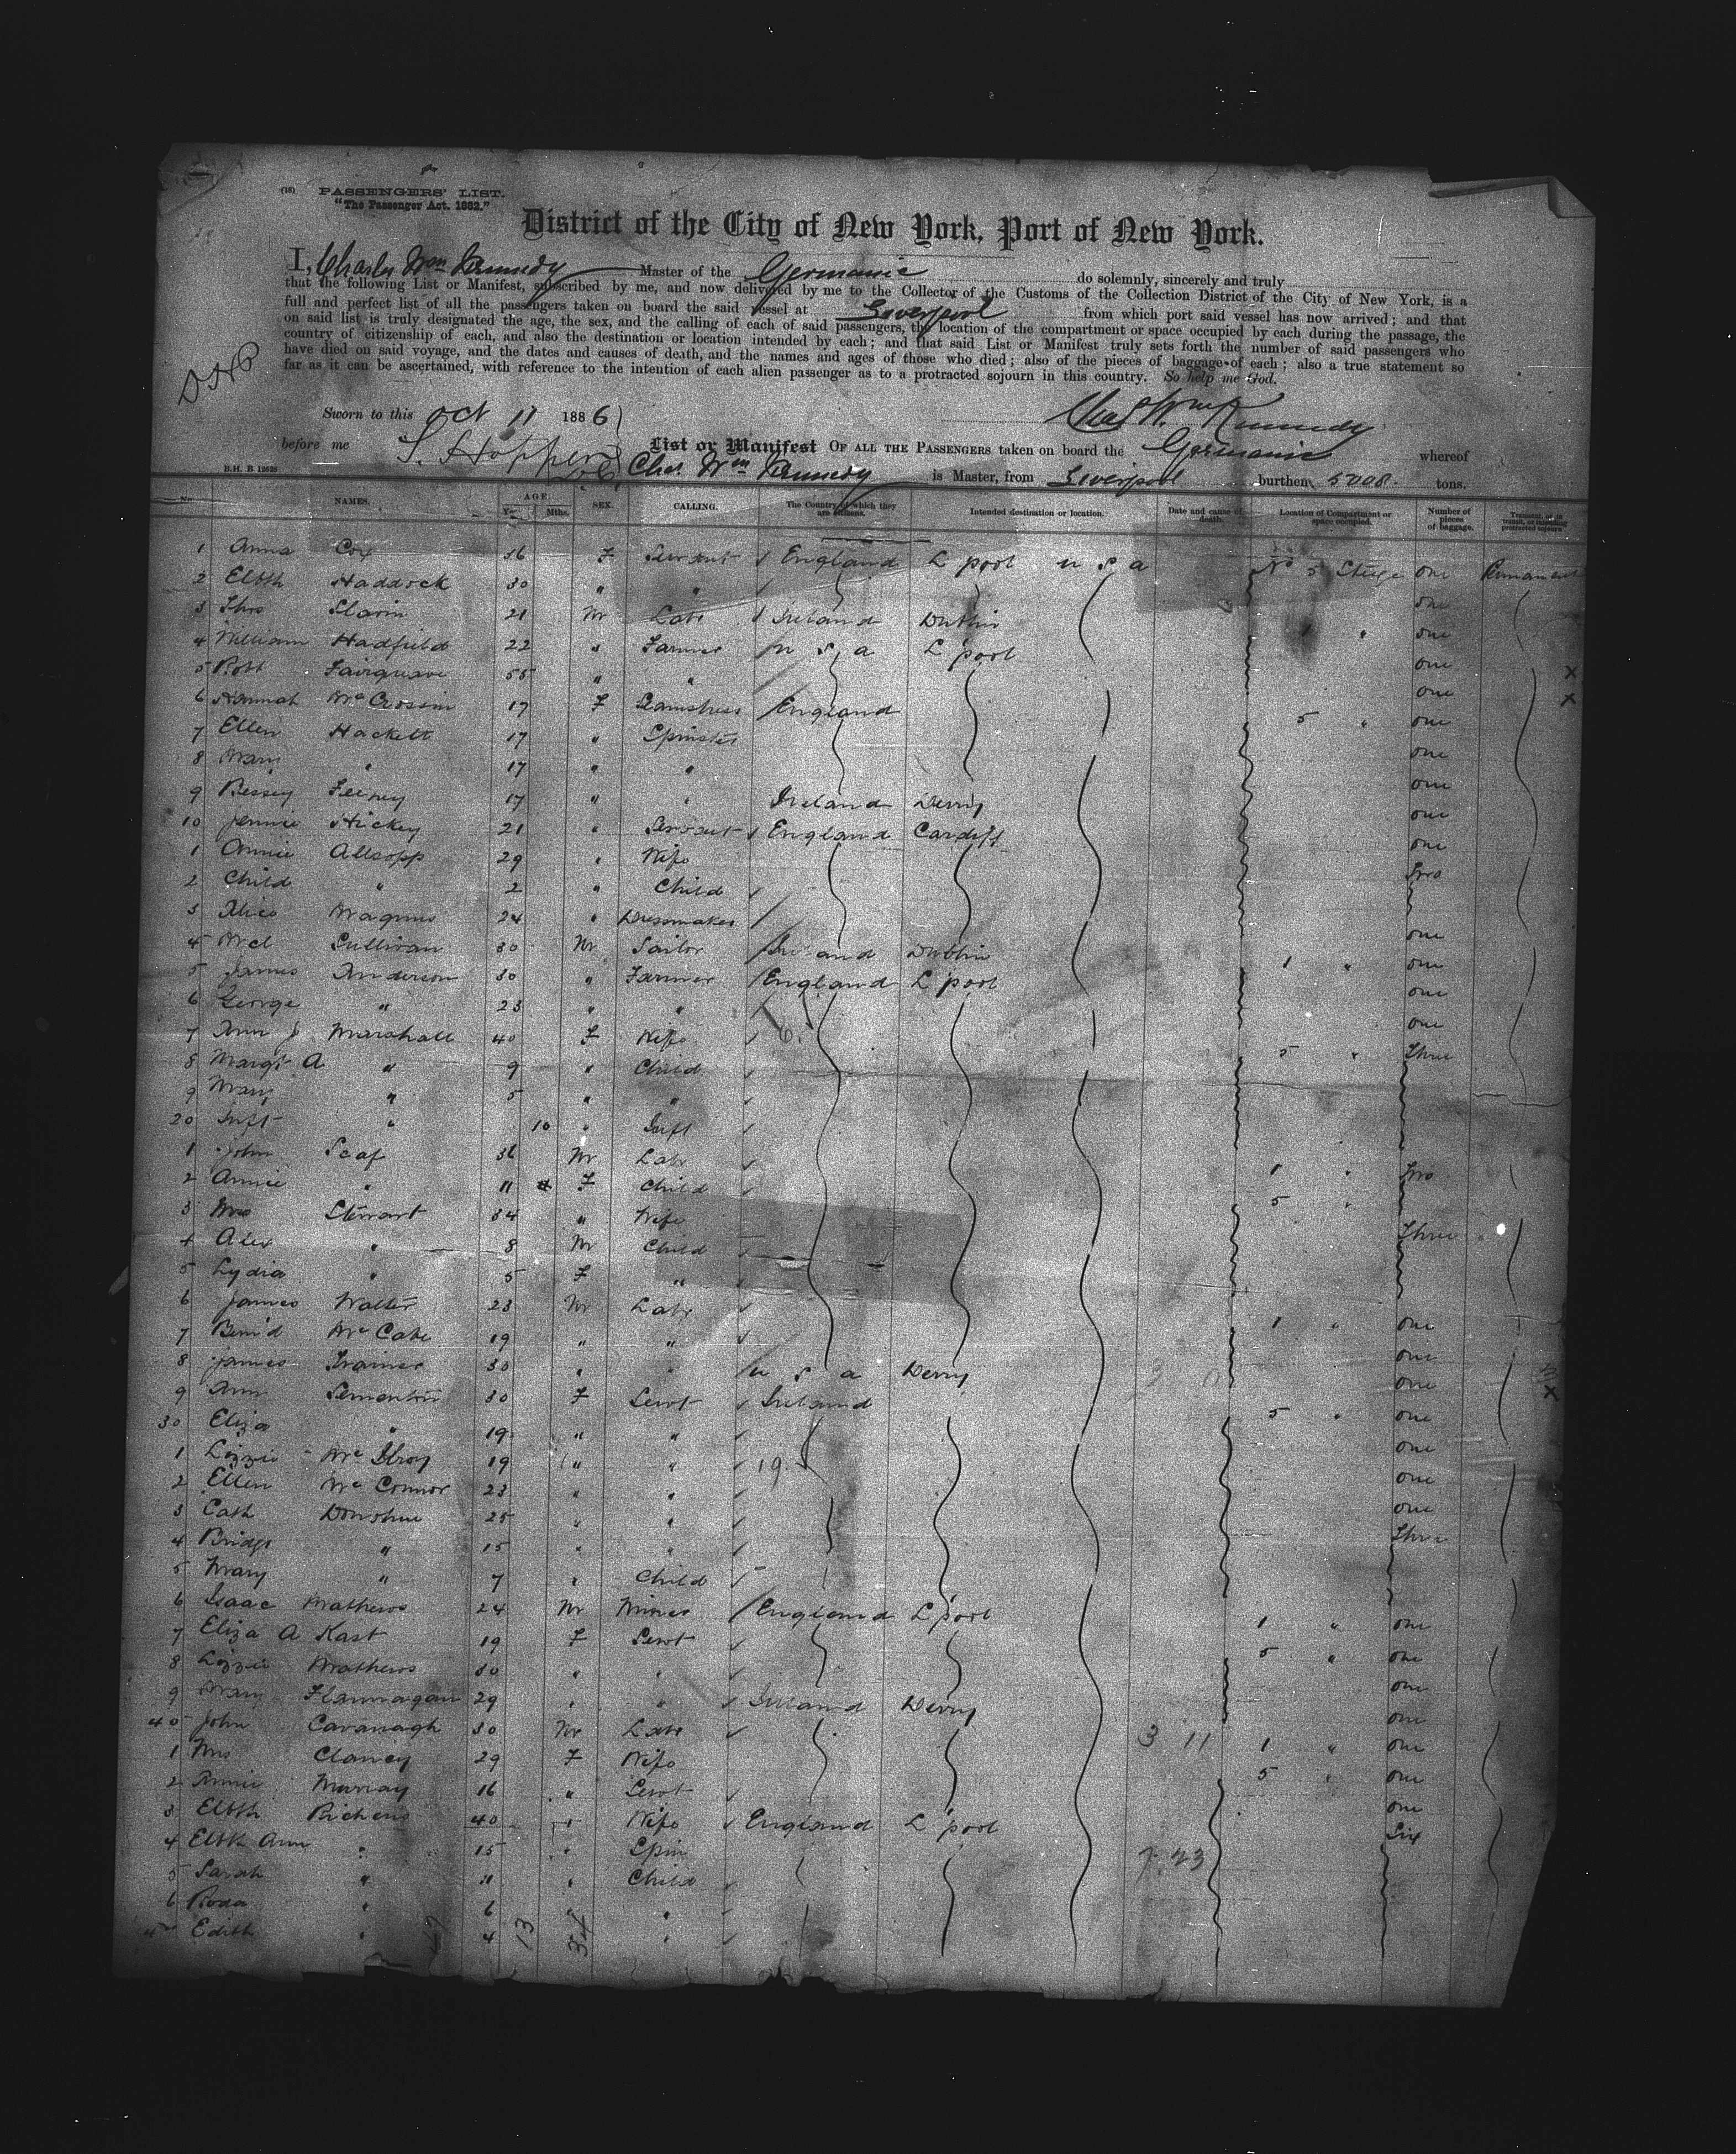 (18) PASSENGERS' LIST.
"The Passenger Act. 1882."
District of the City of New York, Port of New York.
I, Charles Wm Kennedy Master of the Germanic do solemnly, sincerely and truly
that the following List or Manifest, subscribed by me, and now delivered by me to the Collector of the Customs of the Collection District of the City of New York, is a
full and perfect list of all the passengers taken on board the said vessel at Liverpool from which port said vessel has now arrived; and that
on said list is truly designated the age, the sex, and the calling of each of said passengers, the location of the compartment or space occupied by each during the passage, the
country of citizenship of each, and also the destination or location intended by each; and that said List or Manifest truly sets forth the number of said passengers who
have died on said voyage, and the dates and causes of death, and the names and ages of those who died; also of the pieces of baggage of each; also a true statement so
far as it can be ascertained, with reference to the intention of each alien passenger as to a protracted sojourn in this country. So help me God.
Sworn to this Oct 11 1886 Chas Wm Kennedy
before me List or Manifest OF ALL THE PASSENGERS taken on board the Germanic whereof
B.H. B 12525 Chas. Wm Kennedy is Master, from Liverpool burthen 5008 tons.
No. NAMES. AGE. Yrs. Mths. SEX. CALLING. The Country of which they are citizens. Intended destination or location. Date and cause of death. Location of Compartment or space occupied. Number of pieces of baggage.
1 Anna Cox 36 F Servant England L'pool U S A No 5 Steige one Permanent
2 Elbth Haddock 30 " " one
3 Thos Slavin 21 M Labr Ireland Dublin " one
4 William Hadfield 22 " Farmer U S A L'pool one
5 Robt Fairgreave 55 " " one X
6 Hannah McCrossin 17 F Seamstress England 5 " one X
7 Ellen Hackett 17 " Spinster one
8 Mary " 17 " " one
9 Bessey Feeney 17 " " Ireland Derry one
10 Jennie Hickey 21 " Servant England Cardiff one
1 Annie Allsopp 29 " Wife Two
2 Child " 2 " Child
3 Alice Magnus 24 " Dressmaker one
4 Sullivan 30 M Sailor Ireland Dublin 1 " one
5 James Anderson 30 " Farmer England L'pool one
6 George " 23 " " one
7 Ann J Marshall 40 F Wife 5 " Three
8 Margt A " 9 " Child
9 Mary " 5 " "
20 Inft " 10 " Inft
1 John Scaf 36 M Labr 1 " Two
2 Annie " 11 F Child 5 "
3 Mrs Stewart 34 " Wife Three
4 Alex " 8 M Child
5 Lydia " 5 F "
6 James Walter 23 M Labr 1 " one
7 Bern'd McCabe 19 " " one
8 James Trainer 30 " " U S A Derry one X
9 Ann Sementon 30 F Servt Ireland 5 " one
30 Eliza " 19 " " one
1 Lizzie McIlroy 19 " " 19 one
2 Ellen McConnor 23 " " one
3 Cath Donohue 25 " " Three
4 Bridgt " 15 " "
5 Mary " 7 " Child
6 Isaac Mathews 24 M Miner England L'pool 1 " one
7 Eliza A Kast 19 F Servt 5 " one
8 Lizzie Mathews 30 " " one
9 Mary Flannagan 29 " " Ireland Derry one
40 John Cavanagh 30 M Labr 3 11 1 " one
1 Mrs Clancy 29 F Wife 5 " one
2 Annie Murray 16 " Servt one
3 Elbth Richens 40 " Wife England L'pool Six
4 Elbth Ann " 15 " Spin 7.23
5 Sarah " 11 " Child
6 Roda " 6 " "
Edith " 4 " "
13 34